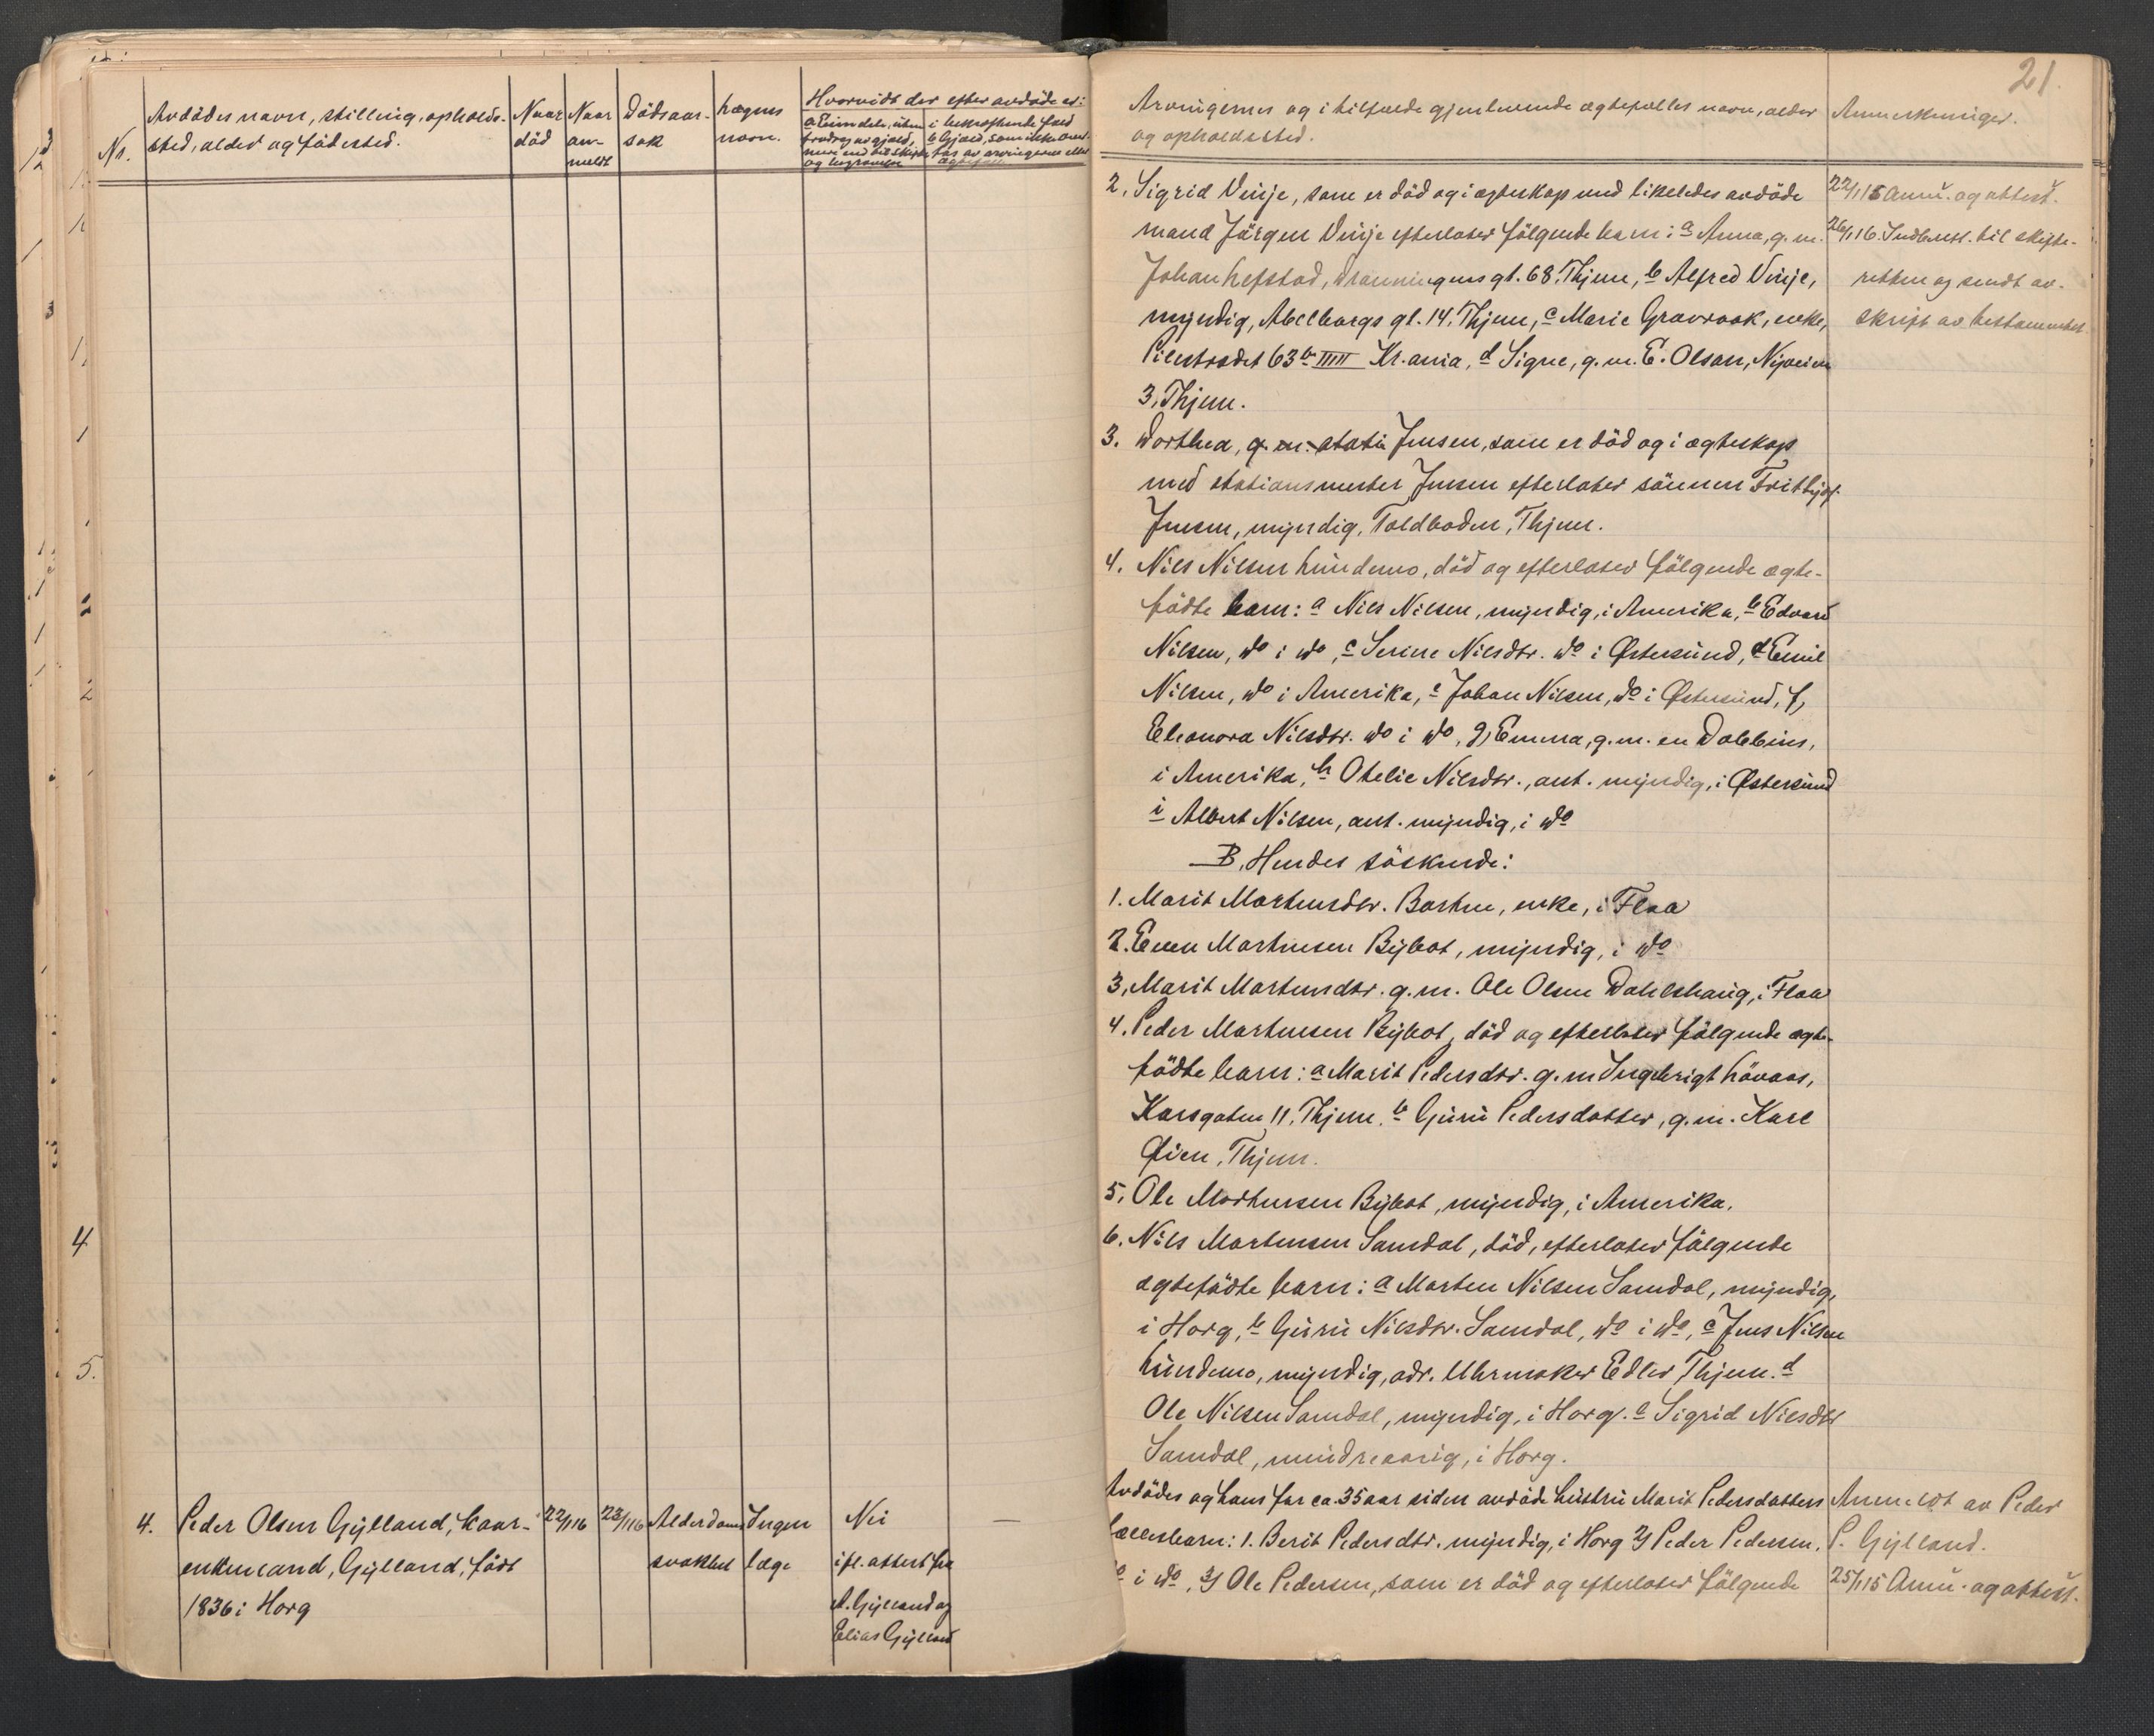 Nr.
Avdödes navn, stilling, opholds-
sted, alder og födested.
Naar
död
Naar
an-
meldt
Dödsaar-
sak
Lægens
navn.
Hvorvidt der efter avdöde er:
a Eiendele, uten
fradrag av gjæld,
i bekræftende fald
b Gjæld, som ikke over-
tas av arvingerne eller
4.
Peder Olsen Gylland, kaar-
enkemand, Gylland, född
1836 i Horg
22/1 16
23/1 16
Alderdoms
svakhet
Ingen
læge
Nei
ifl. attest fra
A. Gylland og
Elias Gylland
—
21.
Arvingernes og i tilfælde gjenlevende ægtefælles navn, alder
og opholdssted.
Anmerkninger.
2. Sigrid Vinje, som er död og i ægteskap med likeledes avdöde
mand Jörgen Vinje efterlater fölgende barn: a Anna, g. m.
Johan Lefstad, Dronningens gt. 68. Thjem, b Alfred Vinje,
myndig, Abelborgs gt. 14. Thjem, c Marie Gravraak, enke,
Pilestrædet 63 b IIIII Kr.ania, d Signe, g. m. E. Olsen,
3, Thjem.
3. Dorthea, g. m. statio Jensen, som er död og i ægteskap
med stationsmester Jensen efterlater sönnen Frithjof
Jensen, myndig, Toldboden, Thjem.
4. Nils Nilsen Lundemo, död og efterlater fölgende ægte-
födte barn: a Nils Nilsen, myndig, i Amerika, b Edvard
Nilsen, do i do, c Serine Nilsdtr. do i Østersund, d Emil
Nilsen, do i Amerika, e Johan Nilsen, do i Østersund, f,
Eleonora Nilsdtr. do i do, g, Emma, g. m. en Dobbins,
i Amerika, h Otelie Nilsdtr., ant. myndig, i Østersund
i Albert Nilsen, ant. myndig, i do
B, Hendes söskende:
1. Marit Mortensdtr. Borten, enke, i Flaa
2. Even Mortensen Bybot, myndig, i do
3, Marit Mortensdtr. g. m. Ole Olsen Dahlshaug, i Flaa
4. Peder Mortensen Bybot, död og efterlater fölgende ægte-
födte barn: a Marit Pedersdtr. g. m Ingebrigt Lövaas,
Korsgaten 11, Thjem, b Guru Pedersdatter, g. m. Karl
Øien, Thjem.
5, Ole Mortensen Bybot, myndig, i Amerika.
6. Nils Mortensen Samdal, död, efterlater fölgende
ægtefödte barn: a Morten Nilsen Samdal, myndig,
i Horg, b Guru Nilsdtr. Samdal, do i do, c Jens Nilsen
Lundemo, myndig, adr. Uhrmaker Edler Thjem. d
Ole Nilsen Samdal, myndig, i Horg. e Sigrid Nilsdtr
Samdal, mindreaarig, i Horg.
Avdödes og hans for ca. 35 aar siden avdöde hustru Marit Pedersdatters
fællesbarn: 1. Berit Pedersdtr. myndig, i Horg 2) Peder Pedersen,
do i do, 3) Ole Pedersen, som er död og efterlater fölgende
22/1 15 Anm. og attest.
26/1 16. Indberet. til skifte-
retten og sendt av-
skrift av testamentet.
Anmeldt av Peder
P. Gylland.
25/1 15 Anm. og attest.